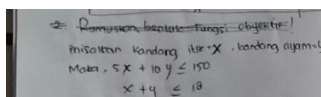 2. Rumuskan bentuk fungsi objektif!
misalkan kandang itik = x, kandang ayam = y
Maka, 5x + 10y ≤ 150
x + y ≤ 18